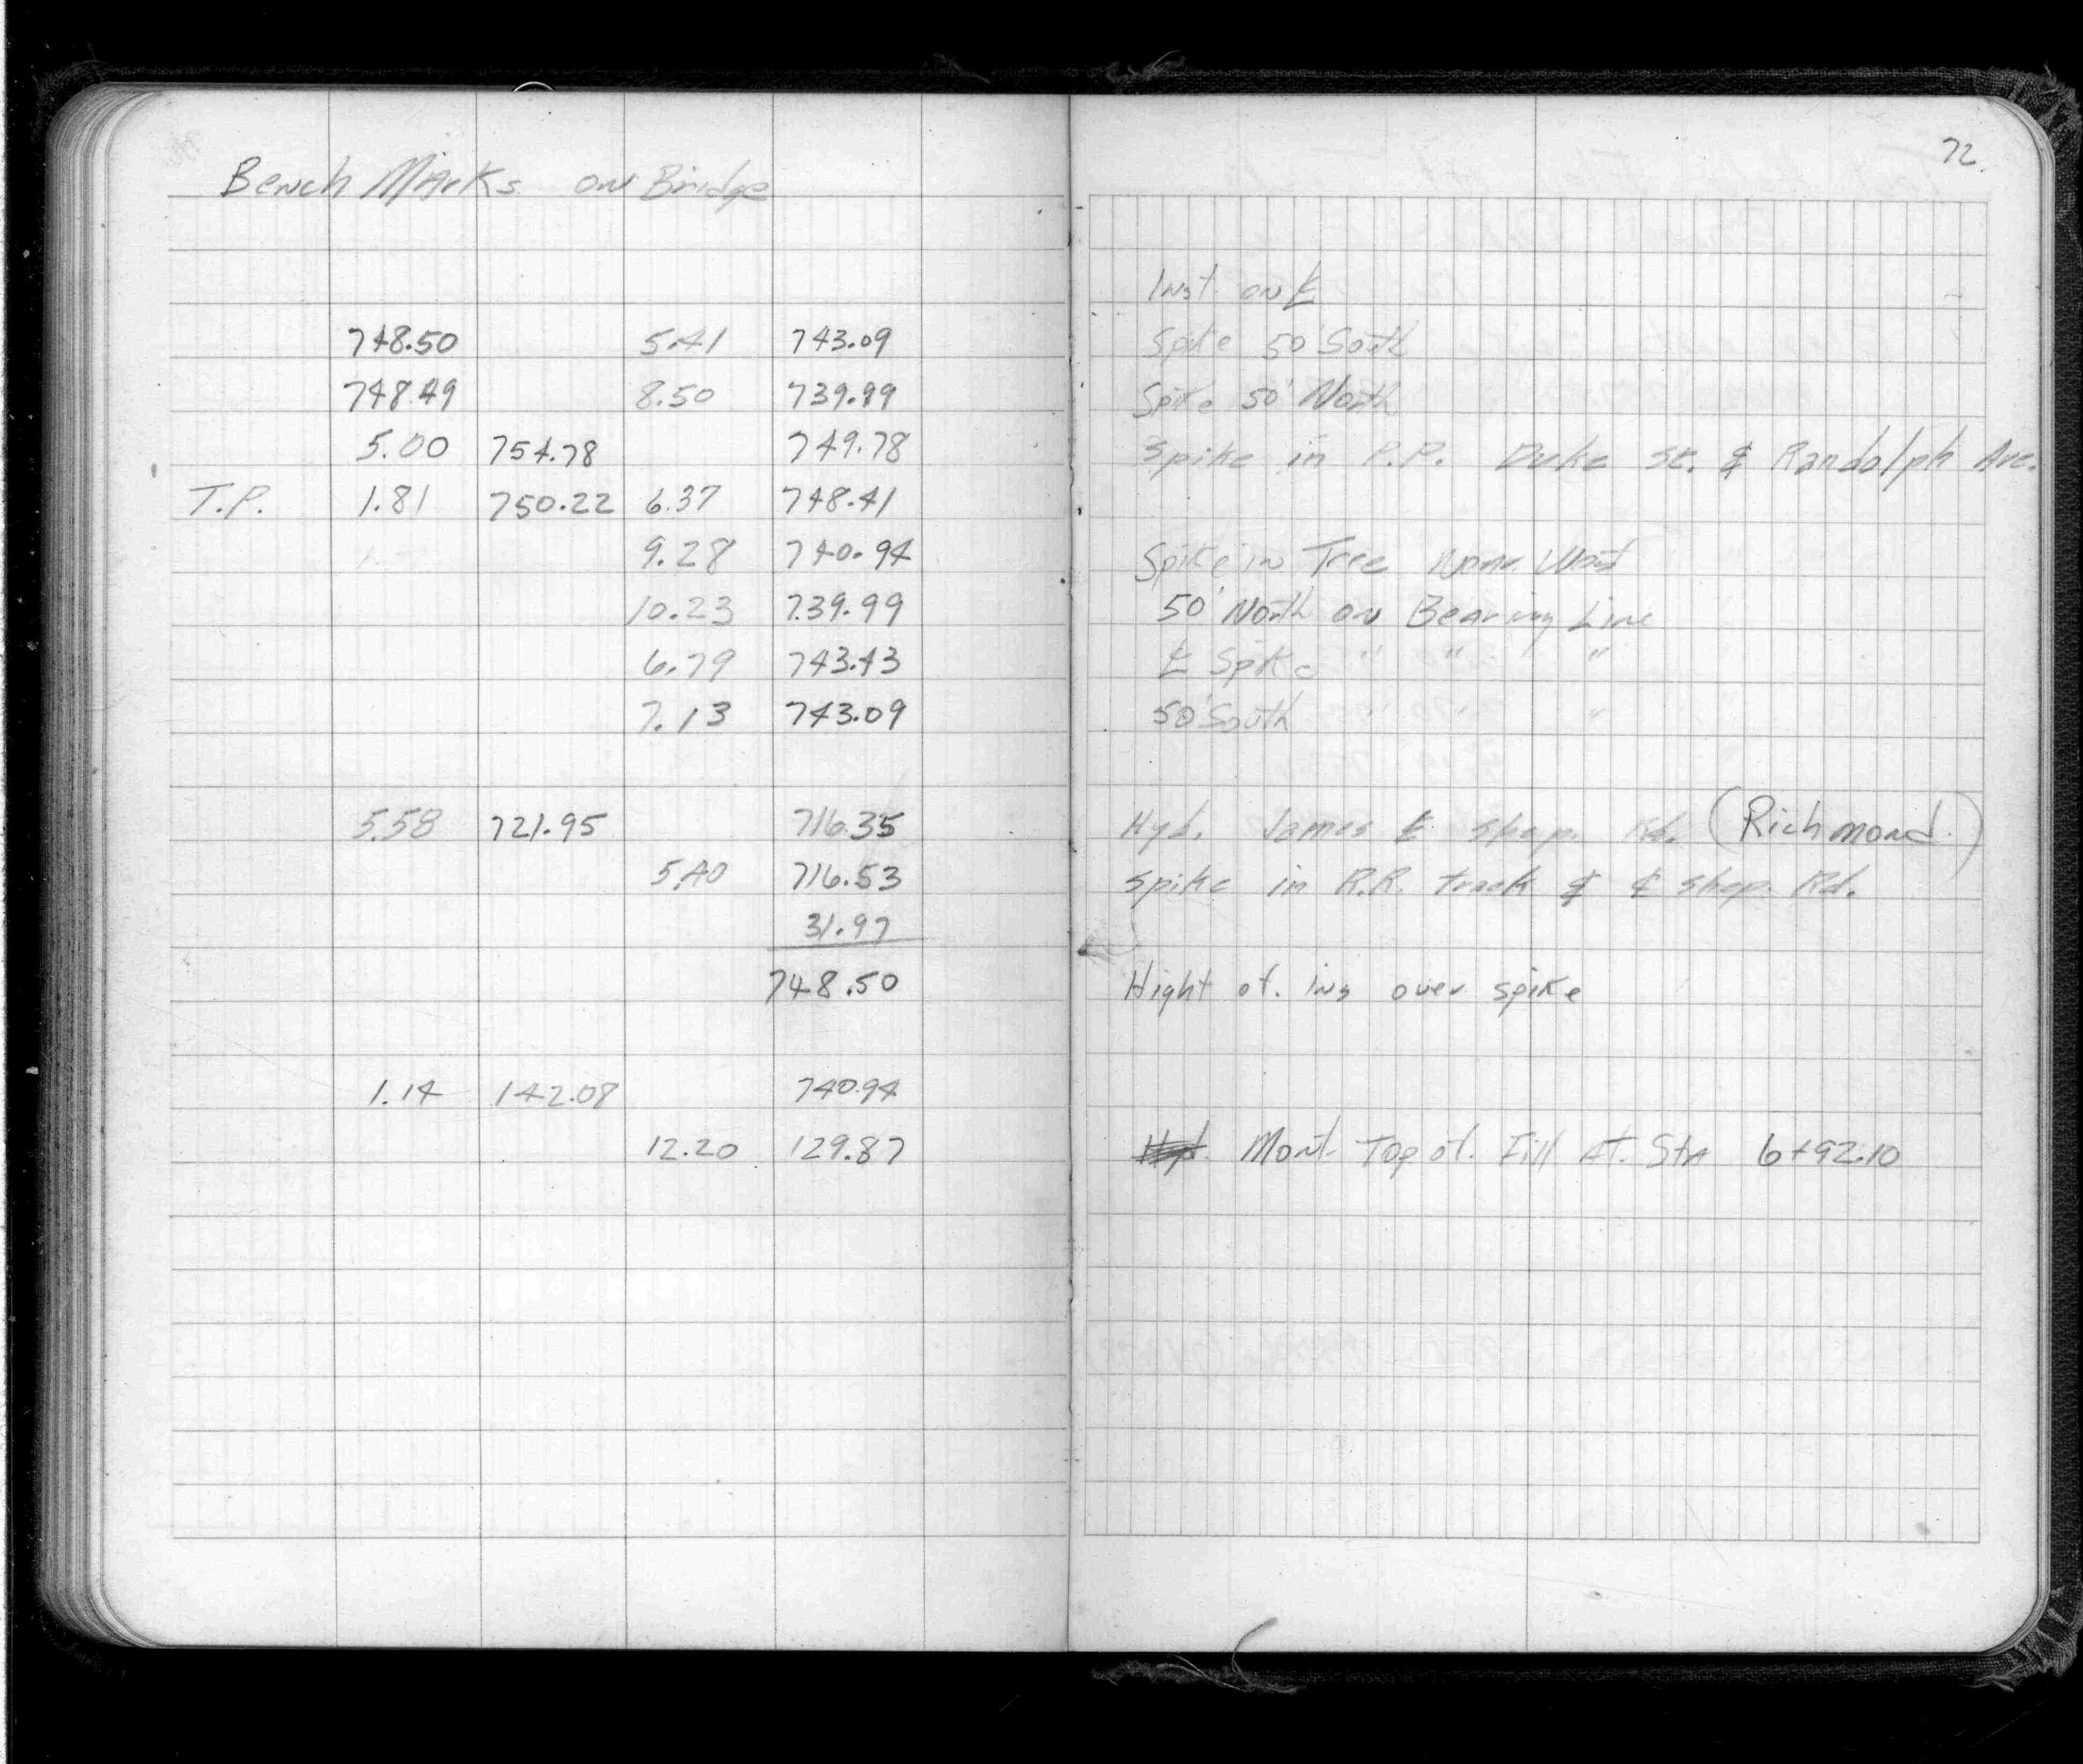 72
Bench Marks on Bridge
Inst. on ℄
748.50 5.41 743.09 Spike 50' South
748.49 8.50 739.99 Spike 50' North
5.00 754.78 749.78 Spike in P.P. Duke St. & Randolph Ave.
T.P. 1.81 750.22 6.37 748.41
9.28 740.94 Spike in Tree
10.23 739.99 50' North on Bearing Line
6.79 743.43 ℄ Spike " " "
7.13 743.09 50' South " " "
5.58 721.95 716.35 Hyd. James & Shep. Rd. (Richmond)
5.40 716.53 spike in R.R. track & ℄ Shep. Rd.
31.97
748.50 Hight of. ins over spike
1.14 142.08 740.94
12.20 129.87 Mont. Top of. Fill At. Sta 6+92.10